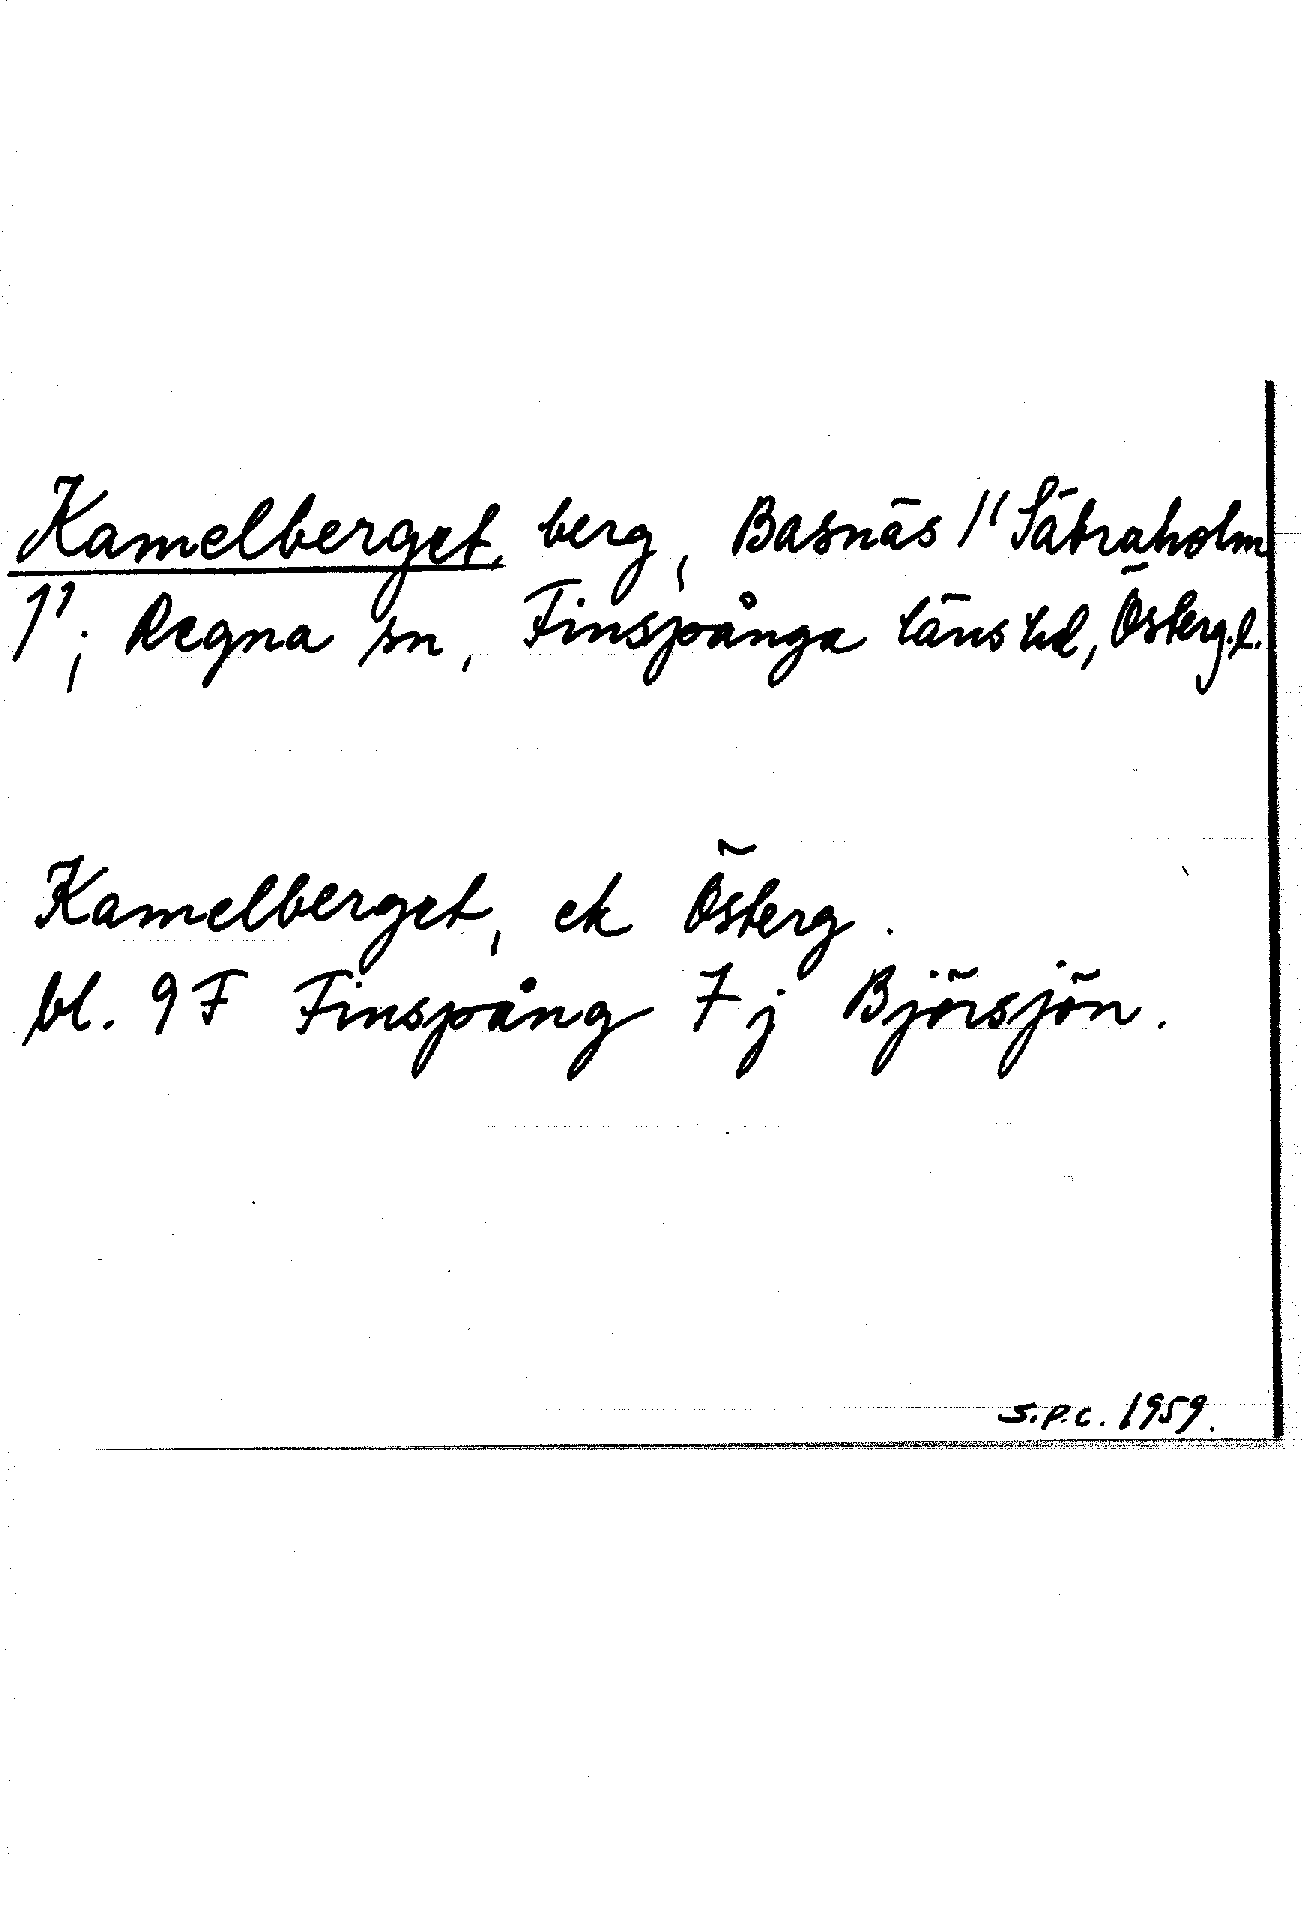 Kamelberget, berg, Basnäs 1" Sätraholm
1"; Regna sn, Finspånga läns hd, Österg.l.
Kamelberget, ek Österg.
bl. 9F Finspång 7j Björsjön.
S.P.C. 1959.